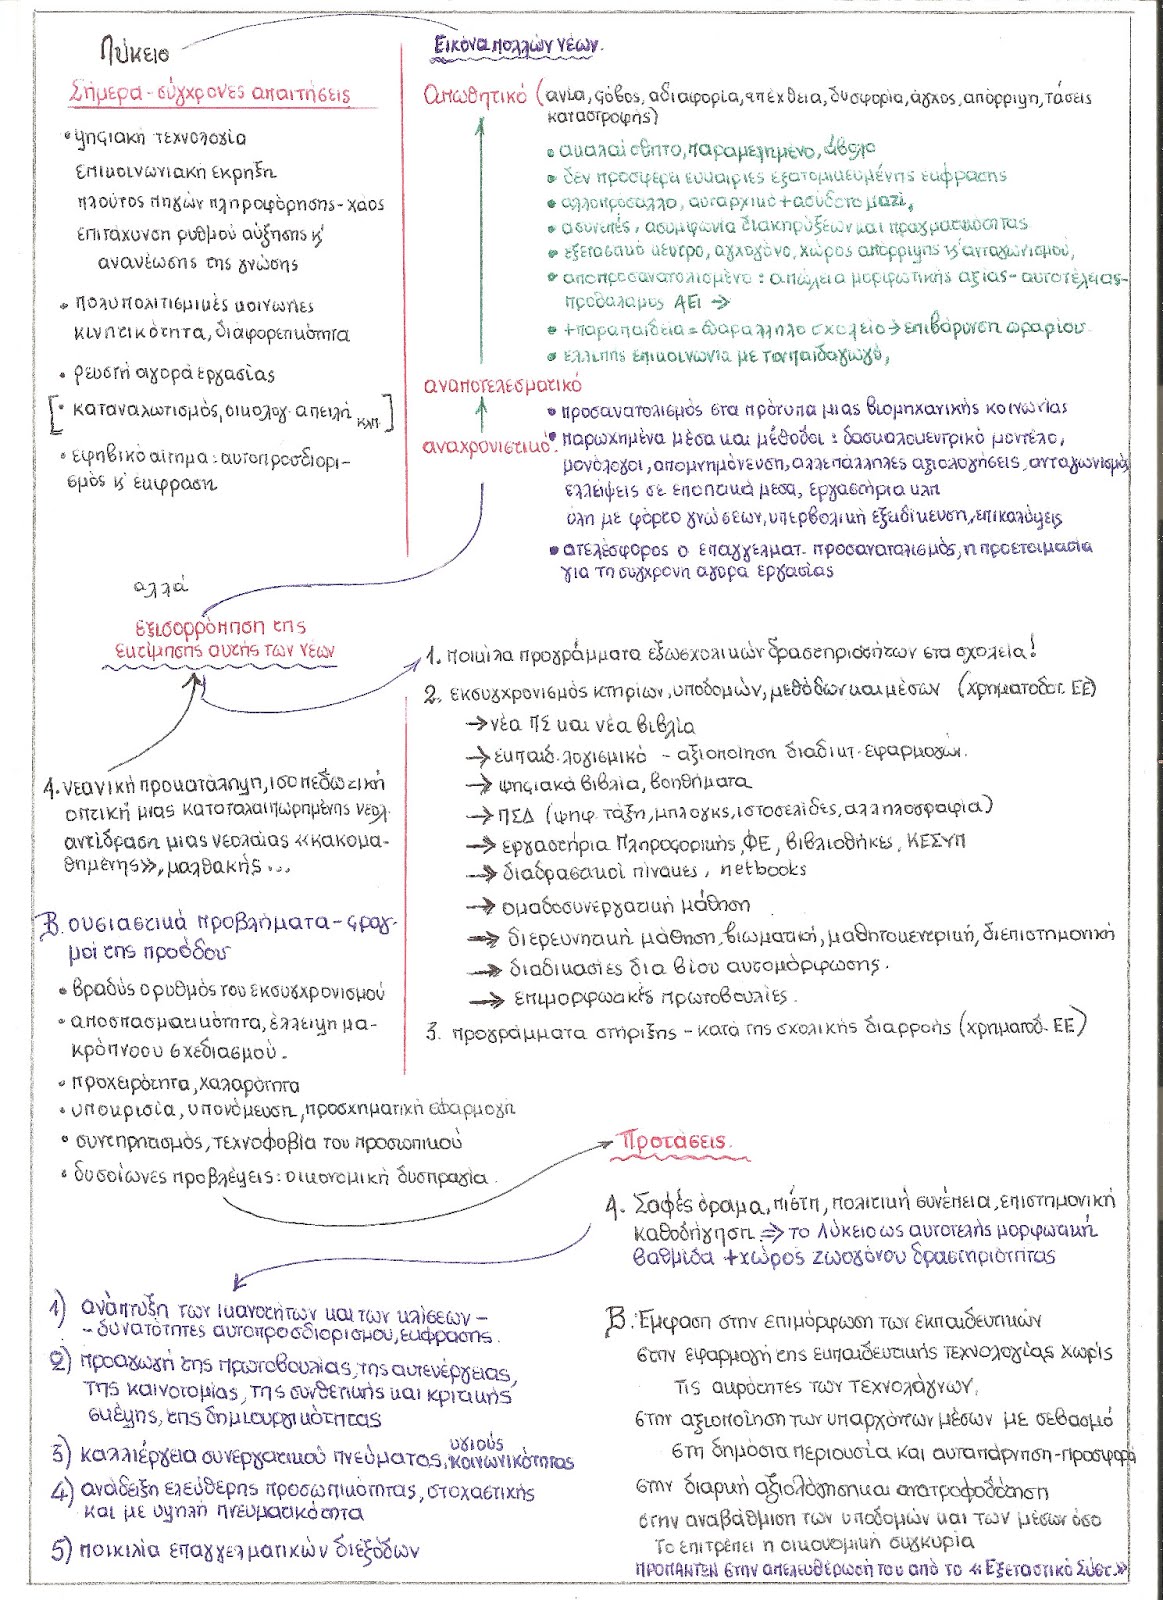 Λύκειο
Σήμερα - σύγχρονες απαιτήσεις
• ψηφιακή τεχνολογία
επικοινωνιακή έκρηξη
πλούτος πηγών πληροφόρησης - χάος
επιτάχυνση ρυθμού αύξησης κ'
ανανέωσης της γνώσης
• πολυπολιτισμικές κοινωνίες
κινητικότητα, διαφορετικότητα
• ρευστή αγορά εργασίας
[• καταναλωτισμός, οικολογ. απειλή κλπ]
• εφηβικό αίτημα: αυτοπροσδιορι-
σμός κ' έκφραση
Εικόνα πολλών νέων.
Απωθητικό (ανία, φόβος, αδιαφορία, απέχθεια, δυσφορία, άγχος, απόρριψη, τάσεις
καταστροφής)
• ακαλαίσθητο, παραμελημένο, άβολο
• δεν προσφέρει ευκαιρίες εξατομικευμένης έκφρασης
• αλλοπρόσαλλο, αυταρχικό + ασύδοτο μαζί,
• ασυνεπές, ασυμφωνία διακηρύξεων και πραγματικότητας
• εξεταστικό κέντρο, αγχογόνο, χώρος απόρριψης κ' ανταγωνισμού,
• αποπροσανατολισμένο: απώλεια μορφωτικής αξίας - αυτοτέλειας-
προθάλαμος ΑΕΙ →
• + παραπαιδεία = παράλληλο σχολείο → επιβάρυνση ωραρίου
• ελλιπής επικοινωνία με τον παιδαγωγό,
αναποτελεσματικό
• προσανατολισμός στα πρότυπα μιας βιομηχανικής κοινωνίας
αναχρονιστικό
• παρωχημένα μέσα και μέθοδοι: δασκαλοκεντρικό μοντέλο,
μονόλογοι, απομνημόνευση, αλλεπάλληλες αξιολογήσεις, ανταγωνισμός
ελλείψεις σε εποπτικά μέσα, εργαστήρια κλπ
ύλη με φόρτο γνώσεων, υπερβολική εξειδίκευση, επικαλύψεις
• ατελέσφορος ο επαγγελματ. προσανατολισμός, η προετοιμασία
για τη σύγχρονη αγορά εργασίας
αλλά
εξισορρόπηση της
εκτίμησης αυτής των νέων
1. ποικίλα προγράμματα εξωσχολικών δραστηριοτήτων στα σχολεία!
2. εκσυγχρονισμός κτηρίων, υποδομών, μεθόδων και μέσων (χρηματοδοτ. ΕΕ)
→ νέα ΠΣ και νέα βιβλία
→ εκπαιδ. λογισμικό - αξιοποίηση διαδικτ. εφαρμογών.
→ ψηφιακά βιβλία, βοηθήματα
→ ΠΣΔ (ψηφ. τάξη, μπλογκς, ιστοσελίδες, αλληλογραφία)
→ εργαστήρια Πληροφορικής, ΦΕ, βιβλιοθήκες, ΚΕΣΥΠ
→ διαδραστικοί πίνακες, netbooks
→ ομαδοσυνεργατική μάθηση
→ διερευνητική μάθηση, βιωματική, μαθητοκεντρική, διεπιστημονική
→ διαδικασίες δια βίου αυτομόρφωσης.
→ επιμορφωτικές πρωτοβουλίες.
3. προγράμματα στήριξης - κατά της σχολικής διαρροής (χρηματοδ. ΕΕ)
Α. νεανική προκατάληψη, ισοπεδωτική
οπτική μιας καταταλαιπωρημένης νεολ.
αντίδραση μιας νεολαίας «κακομα-
θημένης», μαλθακής...
Β. ουσιαστικά προβλήματα - φραγ-
μοί της προόδου
• βραδύς ο ρυθμός του εκσυγχρονισμού
• αποσπασματικότητα, έλλειψη μα-
κρόπνοου σχεδιασμού.
• προχειρότητα, χαλαρότητα
• υποκρισία, υπονόμευση, προσχηματική εφαρμογή
• συντηρητισμός, τεχνοφοβία του προσωπικού
• δυσοίωνες προβλέψεις: οικονομική δυσπραγία.
Προτάσεις.
Α. Σαφές όραμα, πίστη, πολιτική συνέπεια, επιστημονική
καθοδήγηση ⇒ το Λύκειο ως αυτοτελής μορφωτική
βαθμίδα + χώρος ζωογόνου δραστηριότητας
1) ανάπτυξη των ικανοτήτων και των κλίσεων -
- δυνατότητες αυτοπροσδιορισμού, έκφρασης.
2) προαγωγή της πρωτοβουλίας, της αυτενέργειας,
της καινοτομίας, της συνθετικής και κριτικής
σκέψης, της δημιουργικότητας
3) καλλιέργεια συνεργατικού πνεύματος, υγιούς κοινωνικότητας
4) ανάδειξη ελεύθερης προσωπικότητας, στοχαστικής
και με υψηλή πνευματικότητα
5) ποικιλία επαγγελματικών διεξόδων
Β. Έμφαση στην επιμόρφωση των εκπαιδευτικών
στην εφαρμογή της εκπαιδευτικής τεχνολογίας χωρίς
τις ακρότητες των τεχνολάγνων,
στην αξιοποίηση των υπαρχόντων μέσων με σεβασμό
στη δημόσια περιουσία και αυταπάρνηση-προσφορά
στην διαρκή αξιολόγηση και ανατροφοδότηση
στην αναβάθμιση των υποδομών και των μέσων όσο
το επιτρέπει η οικονομική συγκυρία
ΠΡΟΠΑΝΤΩΝ στην απελευθέρωσή του από το «Εξεταστικό Σύστ.»